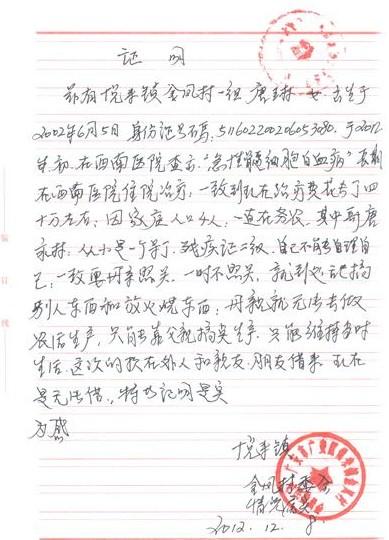 证明
兹有悦来镇金凤村一组唐 女 出生于
2002年6月5日 身份证号码:51160220020605 于2012
年初在西南医院查示“急性髓细胞白血病”长期
在西南医院住院治疗,一致到现在治疗费花去了四
十万左右,因家庭人口4人,一直在务农,其中哥唐
从小是一个 残疾证二级,自己不能自理自
己,一致要母亲照关,一时不照关,就到处 搞
别人东西和放火烧东西,母亲就无法去做
农活生产,只能靠父亲搞点生产,只能维持当时
生活,这次的款在外人和亲友、朋友借来,现在
是无法借,特此证明是实
为感
悦来镇
金凤村委会
情况属实
2012.12.8
装订线